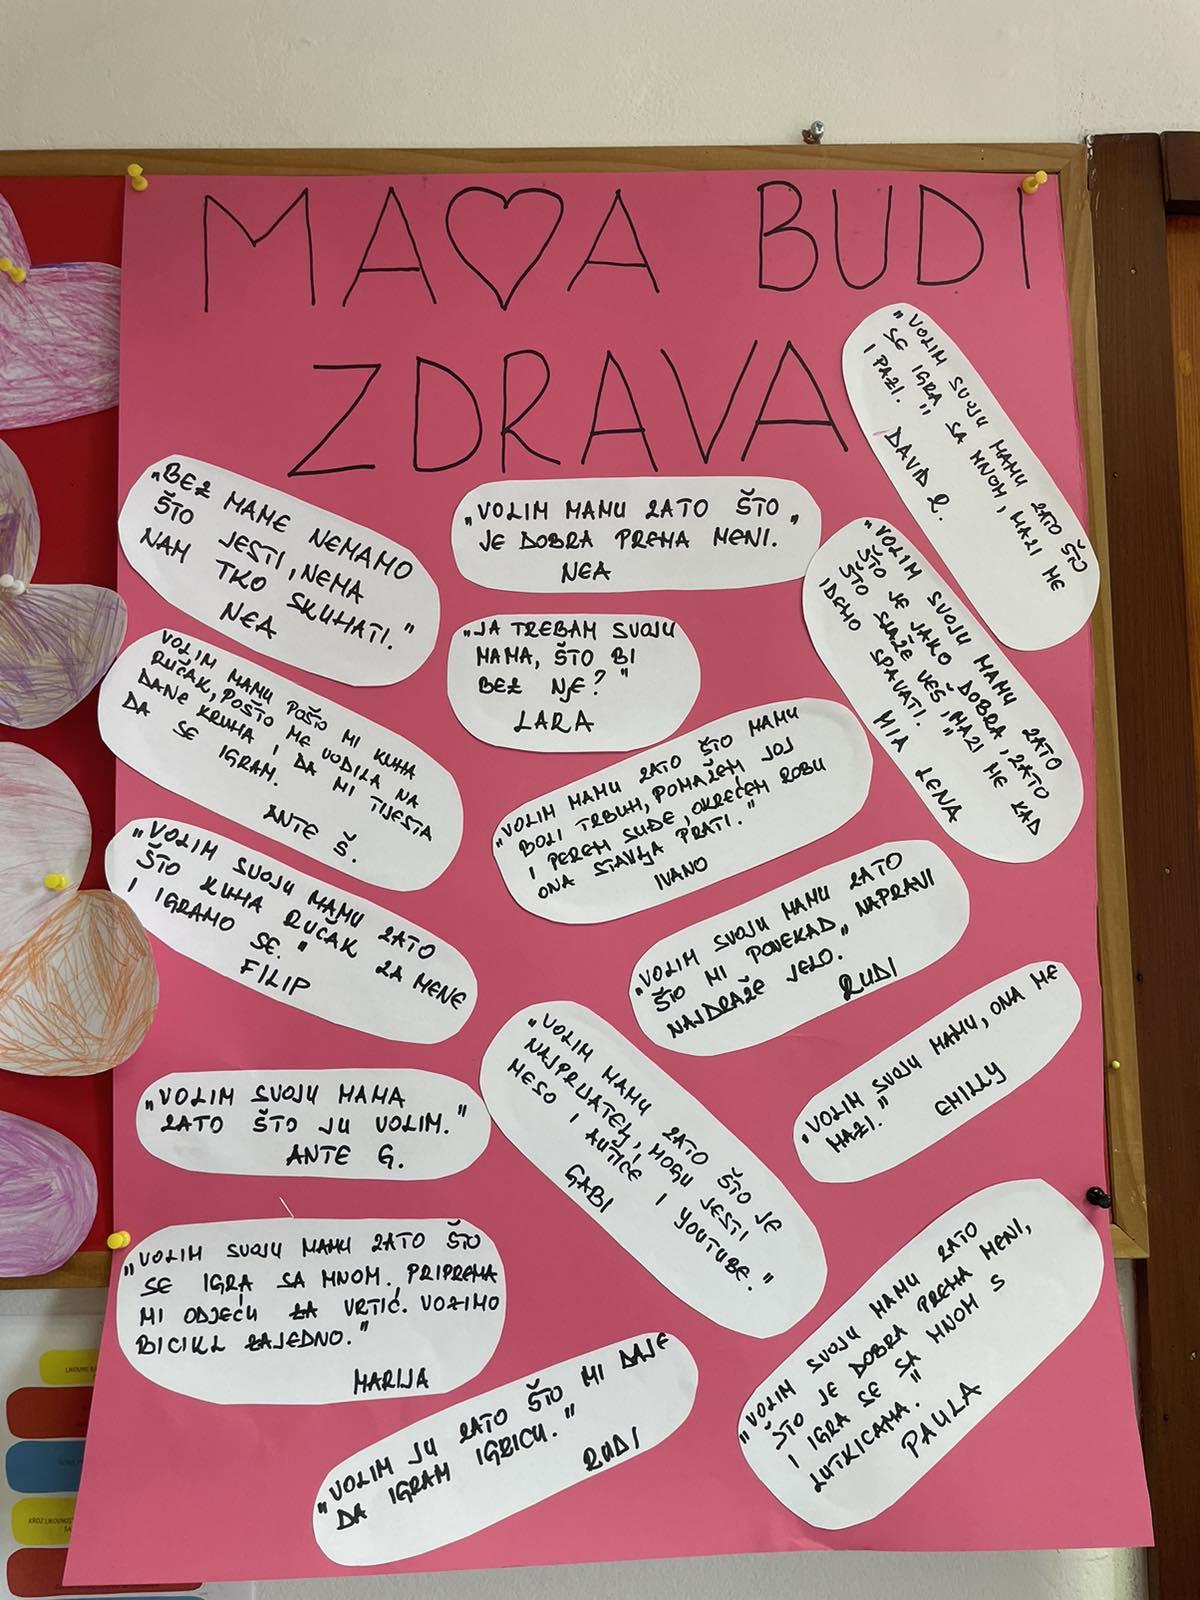 MA♡A BUDI
ZDRAVA
"VOLIM SVOJU MAMU ZATO ŠTO
SE IGRA SA MNOM, MAZI ME
I PAZI."
DAVID R.
"BEZ MAME NEMAMO
ŠTO JESTI, NEMA
NAM TKO SKUHATI."
NEA
"VOLIM MAMU ZATO ŠTO"
JE DOBRA PREMA MENI.
NEA
"VOLIM SVOJU MAMU ZATO
ŠTO JE JAKO DOBRA, ZATO
ŠTO SLAŽE VEŠ, MAZI ME KAD
IDEMO SPAVATI."
MIA LENA
"JA TREBAM SVOJU
MAMA, ŠTO BI
BEZ NJE?"
LARA
VOLIM MAMU POŠTO MI KUHA
RUČAK, POŠTO ME VODILA NA
DANE KRUHA I DA MI TIJESTA
DA SE IGRAM.
ANTE Š.
"VOLIM MAMU ZATO ŠTO MAMU
BOLI TRBUH, POMAŽEM JOJ
I PEREM SUĐE, OKREĆEM ROBU
ONA STAVLJA PRATI."
IVANO
"VOLIM SVOJU MAMU ZATO
ŠTO KUHA RUČAK ZA MENE
I IGRAMO SE."
FILIP
"VOLIM SVOJU MAMU ZATO
ŠTO MI PONEKAD NAPRAVI
NAJDRAŽE JELO."
RUDI
"VOLIM SVOJU MAMU, ONA ME
MAZI."
EMILLY
"VOLIM MAMU ZATO ŠTO JE
NAJPRIJATELJ, MOGU JESTI
MESO I AUTIĆE I YOUTUBE."
GABI
"VOLIM SVOJU MAMA
ZATO ŠTO JU VOLIM."
ANTE G.
"VOLIM SVOJU MAMU ZATO ŠTO
SE IGRA SA MNOM. PRIPREMA
MI ODJEĆU ZA VRTIĆ. VOZIMO
BICIKL ZAJEDNO."
MARIJA
"VOLIM SVOJU MAMU ZATO
ŠTO JE DOBRA PREMA MENI,
I IGRA SE SA MNOM S
LUTKICAMA."
PAULA
"VOLIM JU ZATO ŠTO MI DAJE
DA IGRAM IGRICU."
RUDI